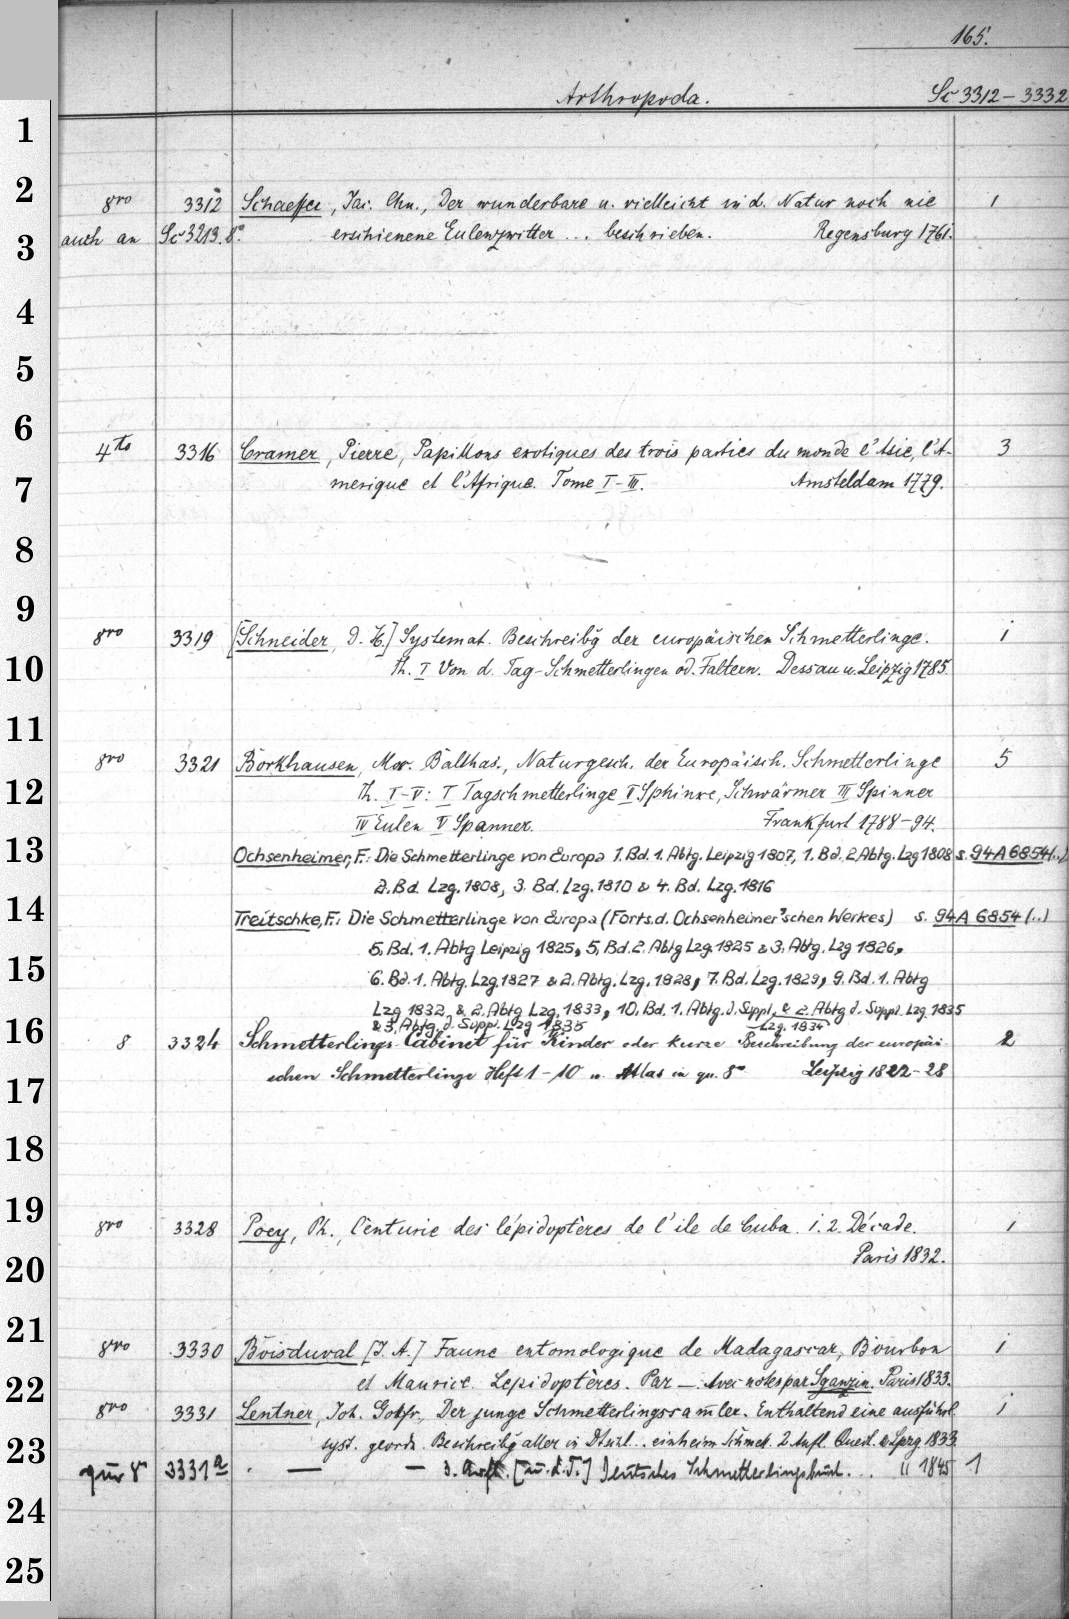 165.
Arthropoda. Sc 3312 – 3332
1
2
8vo 3312 Schaeffer, Jac. Chn., Der wunderbare u. vielleicht in d. Natur noch nie 1
auch an Sc 3213. 8o erschienene Eulenzwitter ... beschrieben. Regensburg 1761.
3
4
5
6
4to 3316 Cramer, Pierre, Papillons exotiques des trois parties du monde l'Asie, l'A- 3
7 merique et l'Afrique. Tome I–III. Amsteldam 1779.
8
9
8vo 3319 [Schneider, D. H.] Systemat. Beschreibg der europäischen Schmetterlinge. 1
10 Th. I Von d. Tag-Schmetterlingen od. Faltern. Dessau u. Leipzig 1785.
11
8vo 3321 Borkhausen, Mor. Balthas., Naturgesch. der Europäisch. Schmetterlinge 5
12 Th. I–V: I Tagschmetterlinge II Sphinxe, Schwärmer III Spinner
IV Eulen V Spanner. Frankfurt 1788–94.
13 Ochsenheimer, F.: Die Schmetterlinge von Europa 1. Bd. 1. Abtg. Leipzig 1807, 1. Bd. 2. Abtg. Lzg 1808 s. 94 A 6854 (..)
2. Bd. Lzg. 1808, 3. Bd. Lzg. 1810 & 4. Bd. Lzg. 1816
14 Treitschke, F.: Die Schmetterlinge von Europa (Forts. d. Ochsenheimer'schen Werkes) s. 94 A 6854 (..)
5. Bd. 1. Abtg Leipzig 1825, 5. Bd. 2. Abtg Lzg. 1825 & 3. Abtg. Lzg 1826,
15 6. Bd. 1. Abtg. Lzg. 1827 & 2. Abtg. Lzg. 1828, 7. Bd. Lzg. 1829, 9. Bd. 1. Abtg
Lzg 1832, & 2. Abtg Lzg. 1833, 10. Bd. 1. Abtg. d. Suppl. & 2. Abtg d. Suppl. Lzg. 1835
& 3. Abtg. d. Suppl. Lzg 1835 Lzg. 1834
16 8 3324 Schmetterlings-Cabinet für Kinder oder kurze Beschreibung der europäi- 2
17 schen Schmetterlinge Heft 1–10 u. Atlas in qu. 8o Leipzig 1822–28
18
19
8vo 3328 Poey, Ph., Centurie des lépidoptères de l'ile de Cuba. 1. 2. Décade. 1
20 Paris 1832.
21
8vo 3330 Boisduval [J. A.] Faune entomologique de Madagascar, Bourbon 1
22 et Maurice. Lepidoptères. Par —. Avec notes par Sganzin. Paris 1833.
8vo 3331 Lentner, Joh. Gottfr., Der junge Schmetterlingssam̄ler. Enthaltend eine ausführl. 1
23 syst. geordn. Beschreibg aller in Dtschl... einheim Schmet. 2. Aufl. Quedl. u. Lpzg 1833.
quer 8 3331a — — 3. Aufl. [u. d. T.] Deutsches Schmetterlingsbuch ... " 1845 1
24
25